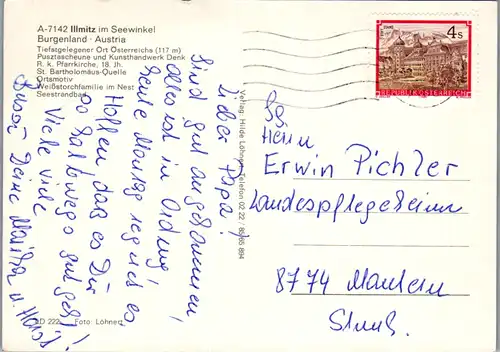 A-7142 Illmitz im Seewinkel
Burgenland · Austria
Tiefstgelegener Ort Österreichs (117 m)
Pusztascheune und Kunsthandwerk Denk
R. k. Pfarrkirche, 18. Jh.
St. Bartholomäus-Quelle
Ortsmotiv
Weißstorchfamilie im Nest
Seestrandbad
Lieber Papa!
Sind gut angekommen!
alles ist in Ordnung!
heute Montag regnet es
Hoffen, das es Dir
so halbwegs gut geht!
Viele viele
Bussi Deine
Verlag: Hilde Löhnert, Telefon 02 22 / 85 65 894
Foto: Löhnert
4s
REPUBLIK ÖSTERREICH
Herrn
Erwin Pichler
Landespflegeheim
8774 Mautern
Stmk.